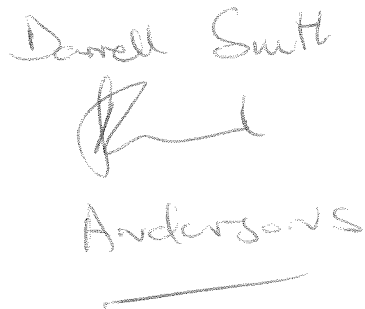 Darrell Smith
Andersons